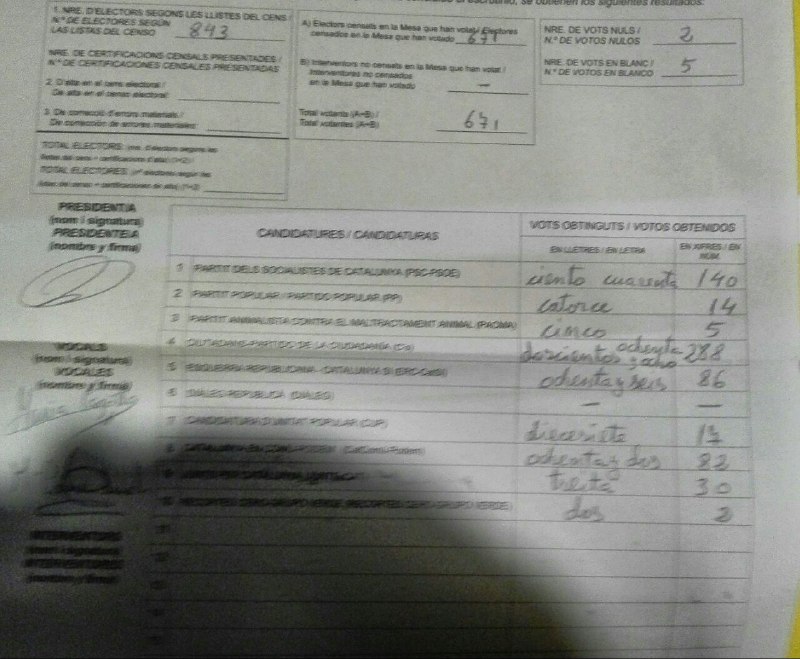 se obtienen los siguientes resultados:
1. NRE. D'ELECTORS SEGONS LES LLISTES DEL CENS /
N.º DE ELECTORES SEGÚN
LAS LISTAS DEL CENSO 843
NRE. DE CERTIFICACIONS CENSALS PRESENTADES /
N.º DE CERTIFICACIONES CENSALES PRESENTADAS
2. D'alta en el cens electoral /
De alta en el censo electoral:
3. De correcció d'errors materials /
De corrección de errores materiales:
TOTAL ELECTORS: (nre. d'electors segons les
llistes del cens + certificacions d'alta) (1+2) /
TOTAL ELECTORES: (nº electores según las
listas del censo + certificaciones de alta) (1+2)
A) Electors censats en la Mesa que han votat / Electores
censados en la Mesa que han votado 671
B) Interventors no censats en la Mesa que han votat /
Interventores no censados
en la Mesa que han votado —
Total votants (A+B) /
Total votantes (A+B) 671
NRE. DE VOTS NULS /
N.º DE VOTOS NULOS 2
NRE. DE VOTS EN BLANC /
N.º DE VOTOS EN BLANCO 5
PRESIDENT/A
(nom i signatura)
PRESIDENTE/A
(nombre y firma)
VOCALS
(nom i signatura)
VOCALES
(nombre y firma)
INTERVENTORS
(nom i signatura)
INTERVENTORES
(nombre y firma)
CANDIDATURES / CANDIDATURAS
VOTS OBTINGUTS / VOTOS OBTENIDOS
EN LLETRES / EN LETRA
EN XIFRES / EN
NÚM.
1 PARTIT DELS SOCIALISTES DE CATALUNYA (PSC-PSOE) ciento cuarenta 140
2 PARTIT POPULAR / PARTIDO POPULAR (PP) catorce 14
3 PARTIT ANIMALISTA CONTRA EL MALTRACTAMENT ANIMAL (PACMA) cinco 5
4 CIUTADANS-PARTIDO DE LA CIUDADANÍA (Cs) doscientos ochenta y ocho 288
5 ESQUERRA REPUBLICANA - CATALUNYA SÍ (ERC-CatSí) ochenta y seis 86
6 DIÀLEG REPUBLICÀ (DIÀLEG) — —
7 CANDIDATURA D'UNITAT POPULAR (CUP) diecisiete 17
8 CATALUNYA EN COMÚ-PODEM (CatComú-Podem) ochenta y dos 82
9 JUNTS PER CATALUNYA treita 30
10 RECORTES CERO-GRUPO VERDE (RECORTES CERO-GRUPO VERDE) dos 2
11
12
13